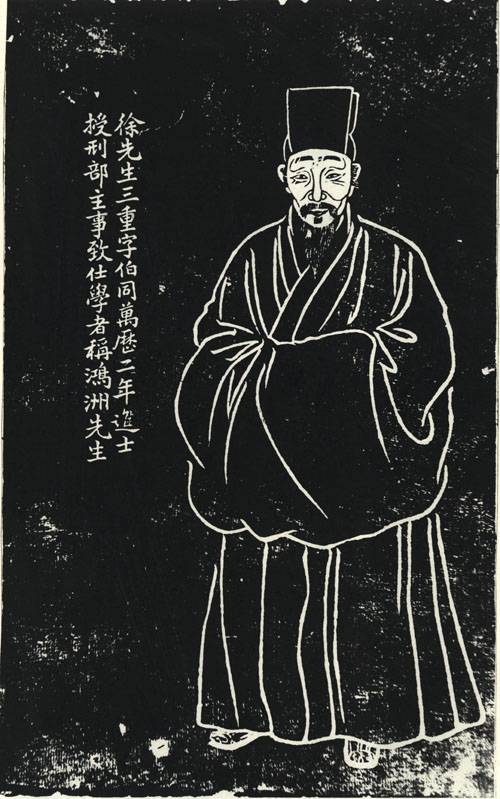 徐先生三重字伯同萬歷二年進士
授刑部主事致仕學者稱鴻洲先生